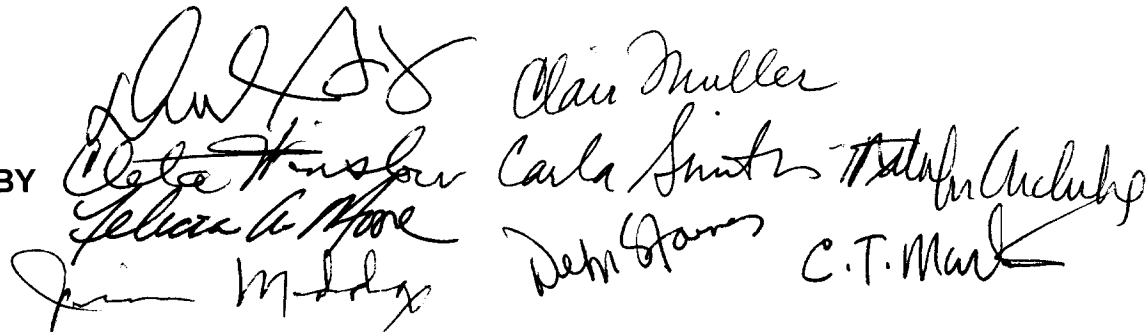 Clair Muller
BY Cleta Winslow Carla Smith
Felicia A. Moore Debi Starnes C.T. Martin
Jim Maddox